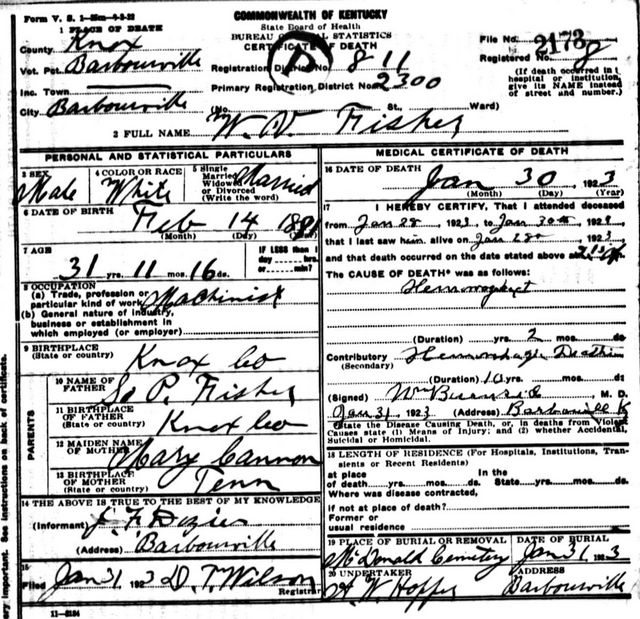 Form V. S. 1-
COMMONWEALTH OF KENTUCKY
State Board of Health
BUREAU OF VITAL STATISTICS
CERTIFICATE OF DEATH
1 PLACE OF DEATH
County Knox
Vot. Pct. Barbourville
Inc. Town
City Barbourville
P
Registration District No. 811
Primary Registration District No. 2300
File No. 2173
Registered No.
(If death occurred in a hospital or institution, give its NAME instead of street and number.)
(No. St., Ward)
2 FULL NAME W. V. Fisher
PERSONAL AND STATISTICAL PARTICULARS
3 SEX Male
4 COLOR OR RACE White
5 Single Married Widowed or Divorced (Write the word) Married
6 DATE OF BIRTH Feb 14 1891
(Month) (Day) (Year)
7 AGE
31 yrs. 11 mos. 16 ds.
IF LESS than 1 day hrs. or min?
8 OCCUPATION
(a) Trade, profession or particular kind of work Machinist
(b) General nature of industry, business or establishment in which employed (or employer)
9 BIRTHPLACE (State or country) Knox Co
PARENTS
10 NAME OF FATHER P. Fisher
11 BIRTHPLACE OF FATHER (State or country) Knox Co
12 MAIDEN NAME OF MOTHER Mary Cannon
13 BIRTHPLACE OF MOTHER (State or country) Tenn
14 THE ABOVE IS TRUE TO THE BEST OF MY KNOWLEDGE
(Informant) J. F. Dozier
(Address) Barbourville
15
Filed Jan 31, 1923 D. T. Wilson
Registrar
11-3184
MEDICAL CERTIFICATE OF DEATH
16 DATE OF DEATH
Jan 30, 1923
(Month) (Day) (Year)
17 I HEREBY CERTIFY, That I attended deceased
from Jan 28, 1923 to Jan 30th, 192
that I last saw him alive on Jan 28, 1923
and that death occurred on the date stated above at
The CAUSE OF DEATH* was as follows:
(Duration) yrs. 2 mos. ds.
Contributory (Secondary) Hemorrhagic
(Duration) 10 yrs. mos. ds
(Signed) M. D.
Jan 31, 1923 (Address) Barbourville K
*State the Disease Causing Death, or, in deaths from Violent
Causes state (1) Means of Injury; and (2) whether Accidental,
Suicidal or Homicidal.
18 LENGTH OF RESIDENCE (For Hospitals, Institutions, Transients or Recent Residents)
at place of death yrs. mos. ds. In the State yrs. mos. ds.
Where was disease contracted,
if not at place of death?
Former or usual residence
19 PLACE OF BURIAL OR REMOVAL DATE OF BURIAL
McDonald Cemetery Jan 31, 1923
20 UNDERTAKER ADDRESS
W Hopper Barbourville
ery important. See instructions on back of certificate.